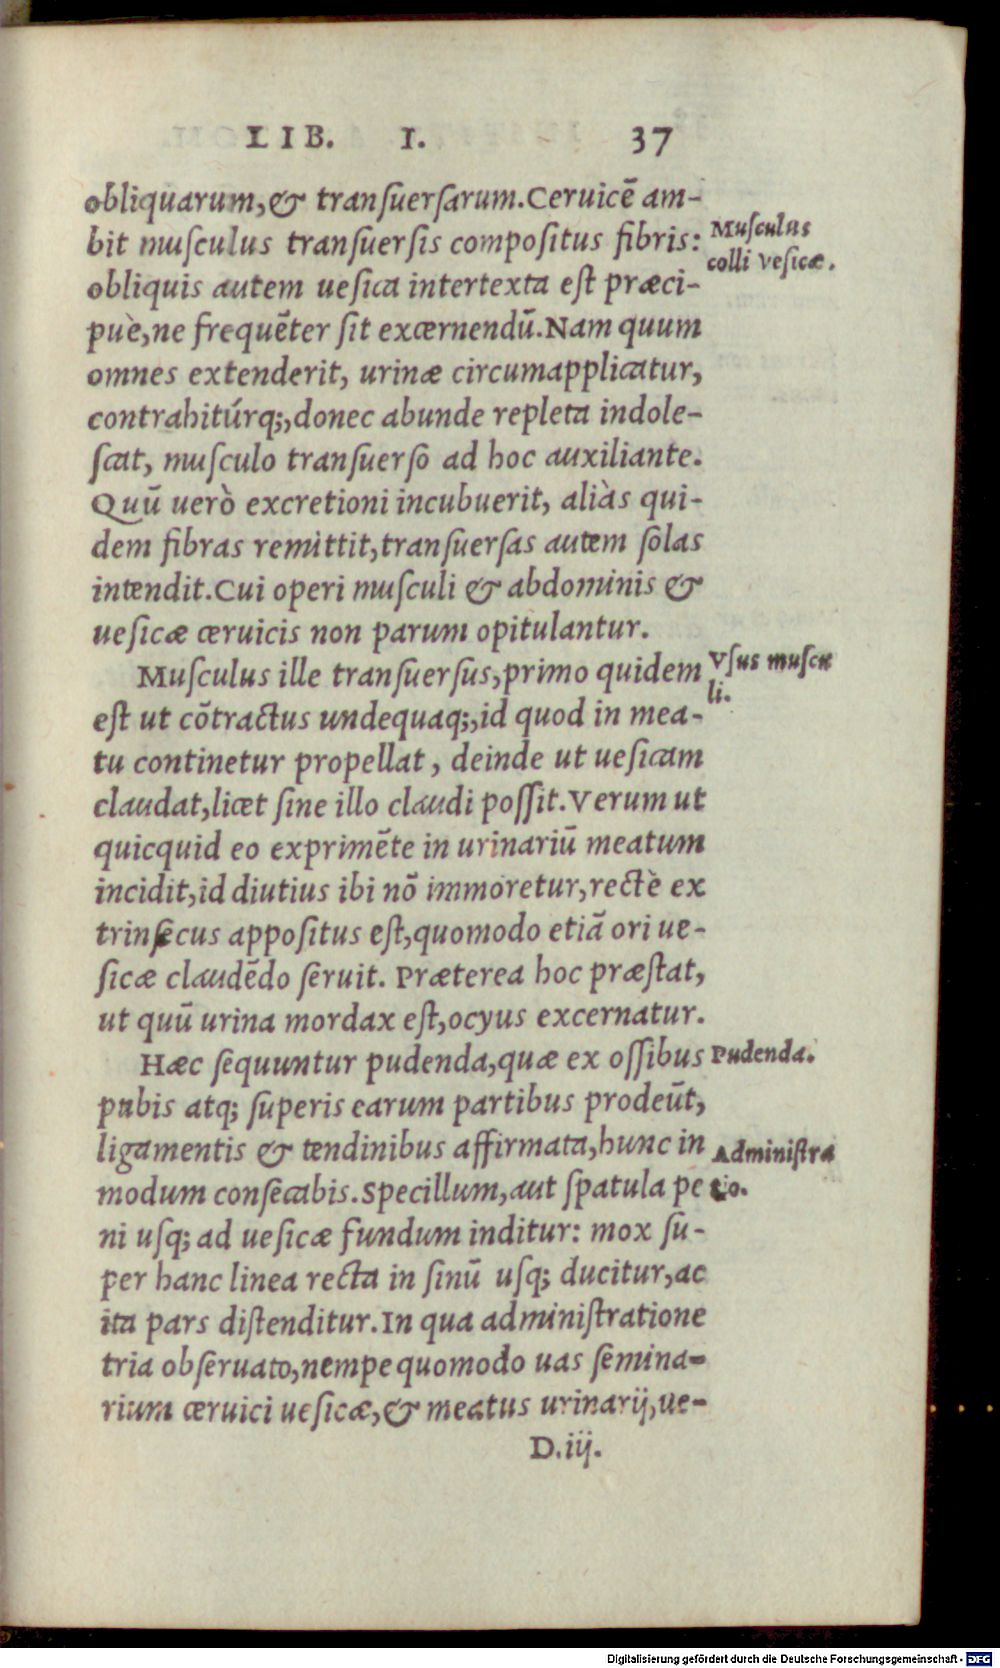 LIB. I. 37
obliquarum,& tranſuerſarum.Ceruicē am-
bit muſculus tranſuerſis compoſitus fibris:
Muſculus
colli veſicæ.
obliquis autem ueſica intertexta eſt præci-
puè,ne frequēter ſit excernendū.Nam quum
omnes extenderit, urinæ circumapplicatur,
contrahitúrq;,donec abunde repleta indole-
ſcat, muſculo tranſuerſo ad hoc auxiliante.
Quū uerò excretioni incubuerit, aliàs qui-
dem fibras remittit,tranſuerſas autem ſolas
intendit.Cui operi muſculi & abdominis &
ueſicæ ceruicis non parum opitulantur.
Muſculus ille tranſuerſus,primo quidem
Vſus muſcu
li.
eſt ut cōtractus undequaq;,id quod in mea-
tu continetur propellat, deinde ut ueſicam
claudat,licet ſine illo claudi poſſit.Verum ut
quicquid eo exprimēte in urinariū meatum
incidit,id diutius ibi nō immoretur,rectè ex
trinſecus appoſitus eſt,quomodo etiā ori ue-
ſicæ claudēdo ſeruit. Præterea hoc præſtat,
ut quū urina mordax eſt,ocyus excernatur.
Hæc ſequuntur pudenda,quæ ex oſſibus
Pudenda.
pubis atq; ſuperis earum partibus prodeūt,
ligamentis & tendinibus affirmata,hunc in
Adminiſtra
tio.
modum conſecabis.Specillum,aut ſpatula pe
ni uſq; ad ueſicæ fundum inditur: mox ſu-
per hanc linea recta in ſinū uſq; ducitur,ac
ita pars diſtenditur.In qua adminiſtratione
tria obſeruato,nempe quomodo uas ſemina-
rium ceruici ueſicæ,& meatus urinarij,ue-
D.iij.
Digitalisierung gefördert durch die Deutsche Forschungsgemeinschaft - DFG